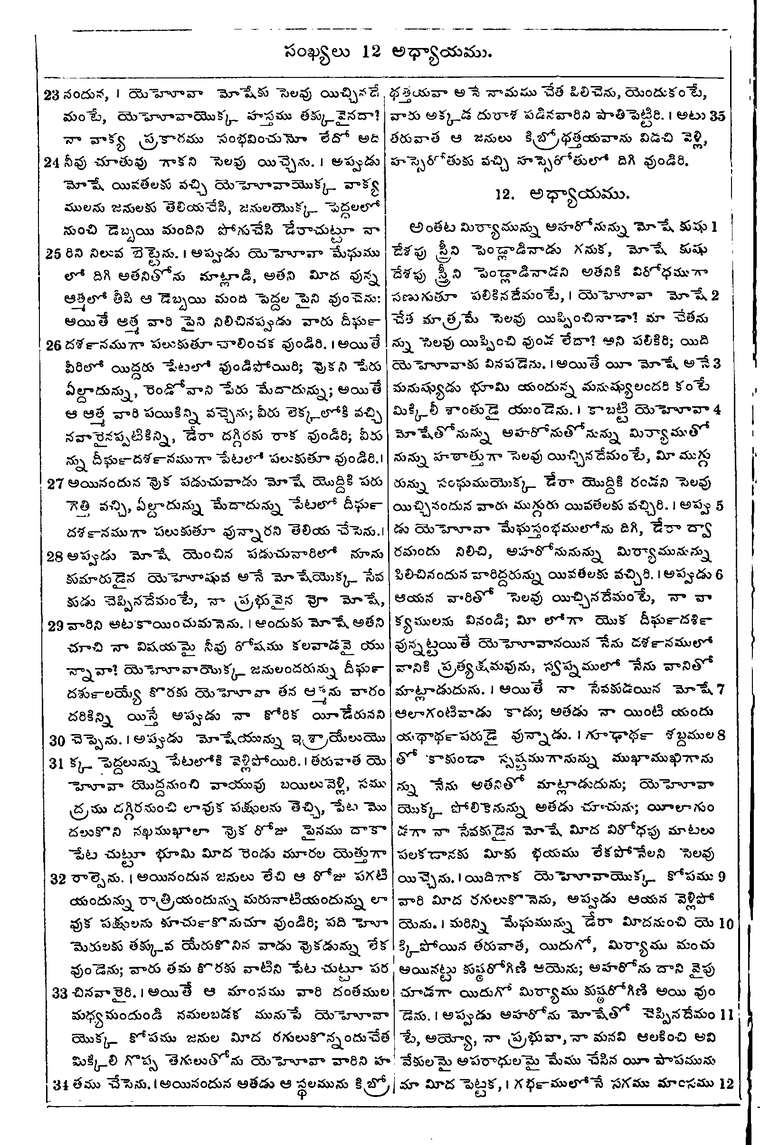 సంఖ్యలు 12 అధ్యాయము.
23 నందున, । యెహోవా మోషేకు సెలవు యిచ్చినదే
మంటే, యెహోవాయొక్క హస్తము తక్కువైనదా?
నా వాక్య ప్రకారము సంభవించునో లేదో అది
24 నీవు చూతువు గాకని సెలవు యిచ్చెను. । అప్పుడు
మోషే యివతలకు వచ్చి యెహోవాయొక్క వాక్య
ములను జనులకు తెలియచేసి, జనులయొక్క పెద్దలలో
నుంచి డెబ్బయి మందిని పోగుచేసి డేరాచుట్టూ నా
25 రిని నిలువ బెట్టెను. । అప్పుడు యెహోవా మేఘము
లో దిగి అతనితోను మాట్లాడి, అతని మీద వున్న
ఆత్మలో తీసి ఆ డెబ్బయి మంది పెద్దల పైని వుంచెను:
అయితే ఆత్మ వారి పైని నిలిచినప్పుడు వారు దీర్ఘ
26 దర్శనముగా పలుకుతూ చాలించక వుండిరి. । అయితే
వీరిలో యిద్దరు పేటలో వుండిపోయిరి; వొకని పేరు
ఏల్దాదున్ను, రెండోవాని పేరు మేదాదున్ను; అయితే
ఆ ఆత్మ వారి పయికిన్ని వచ్చెను; వీరు లెక్కలోకి వచ్చి
నవారైనప్పటికిన్ని, డేరా దగ్గిరకు రాక వుండిరి; వీరు
న్ను దీర్ఘదర్శనముగా పేటలో పలుకుతూ వుండిరి. ।
27 అయినందున వొక పడుచువాడు మోషే యొద్దికి పరు
గెత్తి వచ్చి, ఏల్దాదున్ను మేదాదున్ను పేటలో దీర్ఘ
దర్శనముగా పలుకుతూ వున్నారని తెలియ చేసెను. ।
28 అప్పుడు మోషే యెంచిన పడుచువారిలో నూను
కుమారుడైన యెహోషువ అనే మోషేయొక్క సేవ
కుడు చెప్పినదేమంటే, నా ప్రభువైన వో మోషే,
29 వారిని అటకాయించుమనెను. । అందుకు మోషే అతని
చూచి నా విషయమై నీవు రోషము కలవాడవై యు
న్నావా? యెహోవాయొక్క జనులందరున్ను దీర్ఘ
దర్శులయ్యే కొరకు యెహోవా తన ఆత్మను వారం
దరికిన్ని యిస్తే అప్పుడు నా కోరిక యీడేరునని
30 చెప్పెను. । అప్పుడు మోషేయున్ను ఇశ్రాయేలుయొ
31 క్క పెద్దలున్ను పేటలోకి వెళ్లిపోయిరి. । తరువాత యె
హోవా యొద్దనుంచి వాయువు బయిలువెళ్లి, సము
ద్రము దగ్గిరనుంచి లావుక పక్షులను తెచ్చి, పేట మొ
దలుకొని నఖముఖాలా వొక రోజు పైనము దాకా
పేట చుట్టూ భూమి మీద రెండు మూరల యెత్తుగా
32 రాల్చెను. । అయినందున జనులు లేచి ఆ రోజు పగటి
యందున్ను రాత్రియందున్ను మరునాటియందున్ను లా
వుక పక్షులను కూర్చుకొనుచూ వుండిరి; పది హో
మెరులకు తక్కువ యేరుకొనిన వాడు వొకడున్ను లేక
వుండెను; వారు తమ కొరకు వాటిని పేట చుట్టూ పర
33 చినవారైరి. । అయితే ఆ మాంసము వారి దంతముల
మధ్యమందుండి నమలబడక మునుపే యెహోవా
యొక్క కోపము జనుల మీద రగులుకొన్నందుచేత
మిక్కిలి గొప్ప తెగులుతోను యెహోవా వారిని హ
34 తము చేసెను. । అయినందున ఆతడు ఆ స్థలమును కిబ్రో
థత్తయవా అనే నామము చేత పిలిచెను, యెందుకంటే,
వారు అక్కడ దురాశ పడినవారిని పాతిపెట్టిరి. । అటు 35
తరువాత ఆ జనులు కిబ్రోథత్తయవాను విడచి వెళ్లి,
హస్సెరోతుకు వచ్చి హస్సెరోతులో దిగి వుండిరి.
12. అధ్యాయము.
అంతట మిర్యామున్ను అహరోనున్ను మోషే కుషు 1
దేశపు స్త్రీని పెండ్లాడినాడు గనుక, మోషే కుషు
దేశపు స్త్రీని పెండ్లాడినాడని అతనికి విరోధముగా
సణుగుతూ పలికినదేమంటే, । యెహోవా మోషే 2
చేత మాత్రమే సెలవు యిప్పించినాడా? మా చేతను
న్ను సెలవు యిప్పించి వుండ లేదా? అని పలికిరి; యిది
యెహోవాకు వినపడెను. । అయితే యీ మోషే అనే 3
మనుష్యుడు భూమి యందున్న మనుష్యులందరి కంటే
మిక్కిలీ శాంతుడై యుండెను. । కాబట్టి యెహోవా 4
మోషేతోనున్ను అహరోనుతోనున్ను మిర్యాముతో
నున్ను హఠాత్తుగా సెలవు యిచ్చినదేమంటే, మీ ముగ్గు
రున్ను సంఘముయొక్క డేరా యొద్దికి రండని సెలవు
యిచ్చినందున వారు ముగ్గురు యివతలకు వచ్చిరి. । అప్పు 5
డు యెహోవా మేఘస్తంభములోను దిగి, డేరా ద్వా
రమందు నిలిచి, అహరోనునున్ను మిర్యామునున్ను
పిలిచినందున వారిద్దరున్ను యివతలకు వచ్చిరి. । అప్పుడు 6
ఆయన వారితో సెలవు యిచ్చినదేమంటే, నా వా
క్యములను వినండి; మీ లోగా యొక దీర్ఘదర్శి
వున్నట్టయితే యెహోవానయిన నేను దర్శనములో
వానికి ప్రత్యక్షమవును, స్వప్నములో నేను వానితో
మాట్లాడుదును. । అయితే నా సేవకుడయిన మోషే 7
ఆలాగంటివాడు కాడు; అతడు నా యింటి యందు
యథార్థపరుడై వున్నాడు. । గూఢార్థ శబ్దముల 8
తో కాకుండా స్పష్టముగానున్ను ముఖాముఖిగాను
న్ను నేను అతనితో మాట్లాడుదును; యెహోవా
యొక్క పోలికెనున్ను అతడు చూచును; యీలాగుం
డగా నా సేవకుడైన మోషే మీద విరోధపు మాటలు
పలకడానకు మీకు భయము లేకపోనేలని సెలవు
యిచ్చెను. । యిదిగాక యెహోవాయొక్క కోపము 9
వారి మీద రగులుకొనెను, అప్పుడు ఆయన వెళ్లిపో
యెను. । మరిన్ని మేఘమున్ను డేరా మీదనుంచి యె 10
క్కిపోయిన తరువాత, యిదుగో, మిర్యాము మంచు
అయినట్టు కుష్ఠరోగిణి ఆయెను; అహరోను దాని వైపు
చూడగా యిదుగో మిర్యాము కుష్ఠరోగిణి అయి వుం
డెను. । అప్పుడు అహరోను మోషేతో చెప్పినదేమం 11
టే, అయ్యో, నా ప్రభువా, నా మనవి ఆలకించి అవి
వేకులమై అపరాధులమై మేము చేసిన యీ పాపమును
మా మీద పెట్టక, । గర్భములోనే సగము మాంసము 12